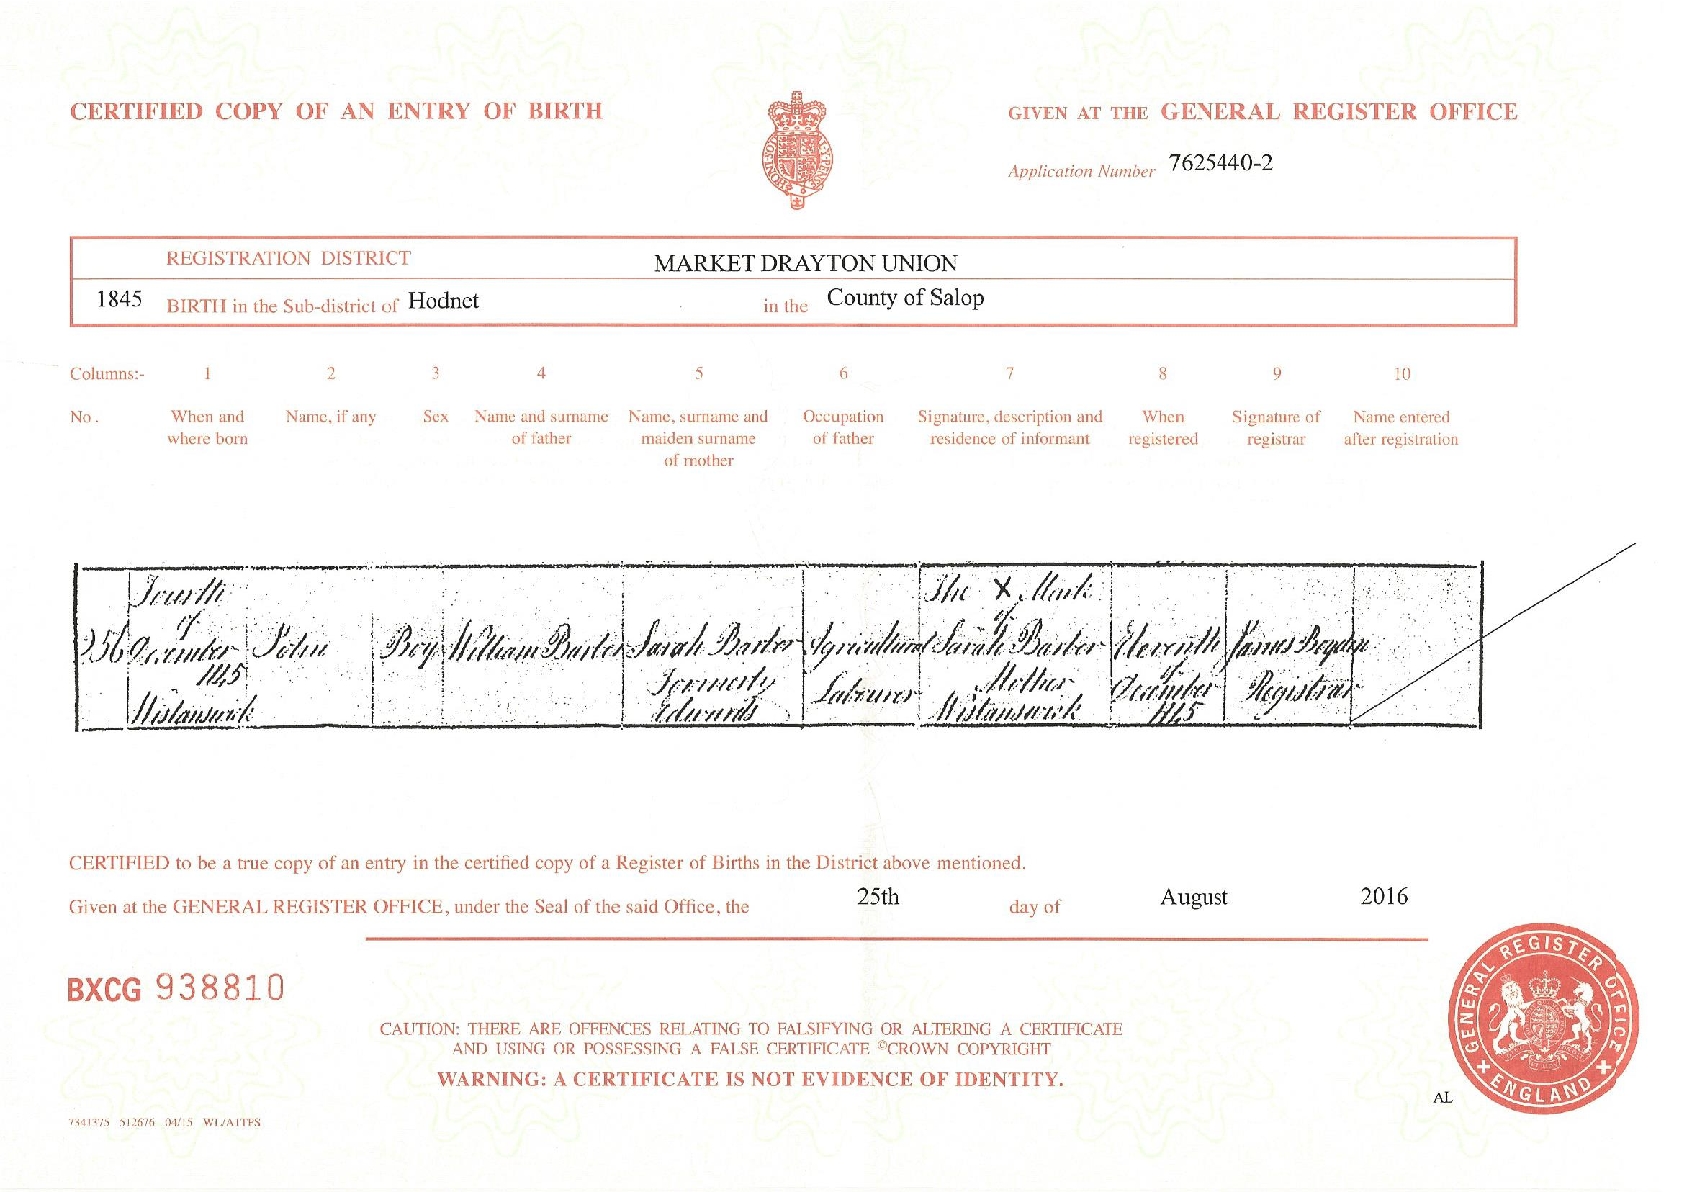 CERTIFIED COPY OF AN ENTRY OF BIRTH
GIVEN AT THE GENERAL REGISTER OFFICE
Application Number 7625440-2
REGISTRATION DISTRICT MARKET DRAYTON UNION
1845 BIRTH in the Sub-district of Hodnet in the County of Salop
Columns:- 1 2 3 4 5 6 7 8 9 10
No. When and where born
Name, if any
Sex
Name and surname of father
Name, surname and maiden surname of mother
Occupation of father
Signature, description and residence of informant
When registered
Signature of registrar
Name entered after registration
256
Fourth
of
December
1845
Wistanswick
John
Boy
William Barber
Sarah Barber
Formerly
Edwards
Agricultural
Labourer
The X Mark
of
Sarah Barber
Mother
Wistanswick
Eleventh
of
December
1845
James Boyden
Registrar
CERTIFIED to be a true copy of an entry in the certified copy of a Register of Births in the District above mentioned.
Given at the GENERAL REGISTER OFFICE, under the Seal of the said Office, the 25th day of August 2016
BXCG 938810
CAUTION: THERE ARE OFFENCES RELATING TO FALSIFYING OR ALTERING A CERTIFICATE
AND USING OR POSSESSING A FALSE CERTIFICATE ©CROWN COPYRIGHT
WARNING: A CERTIFICATE IS NOT EVIDENCE OF IDENTITY.
GENERAL REGISTER OFFICE
ENGLAND
AL
04/15